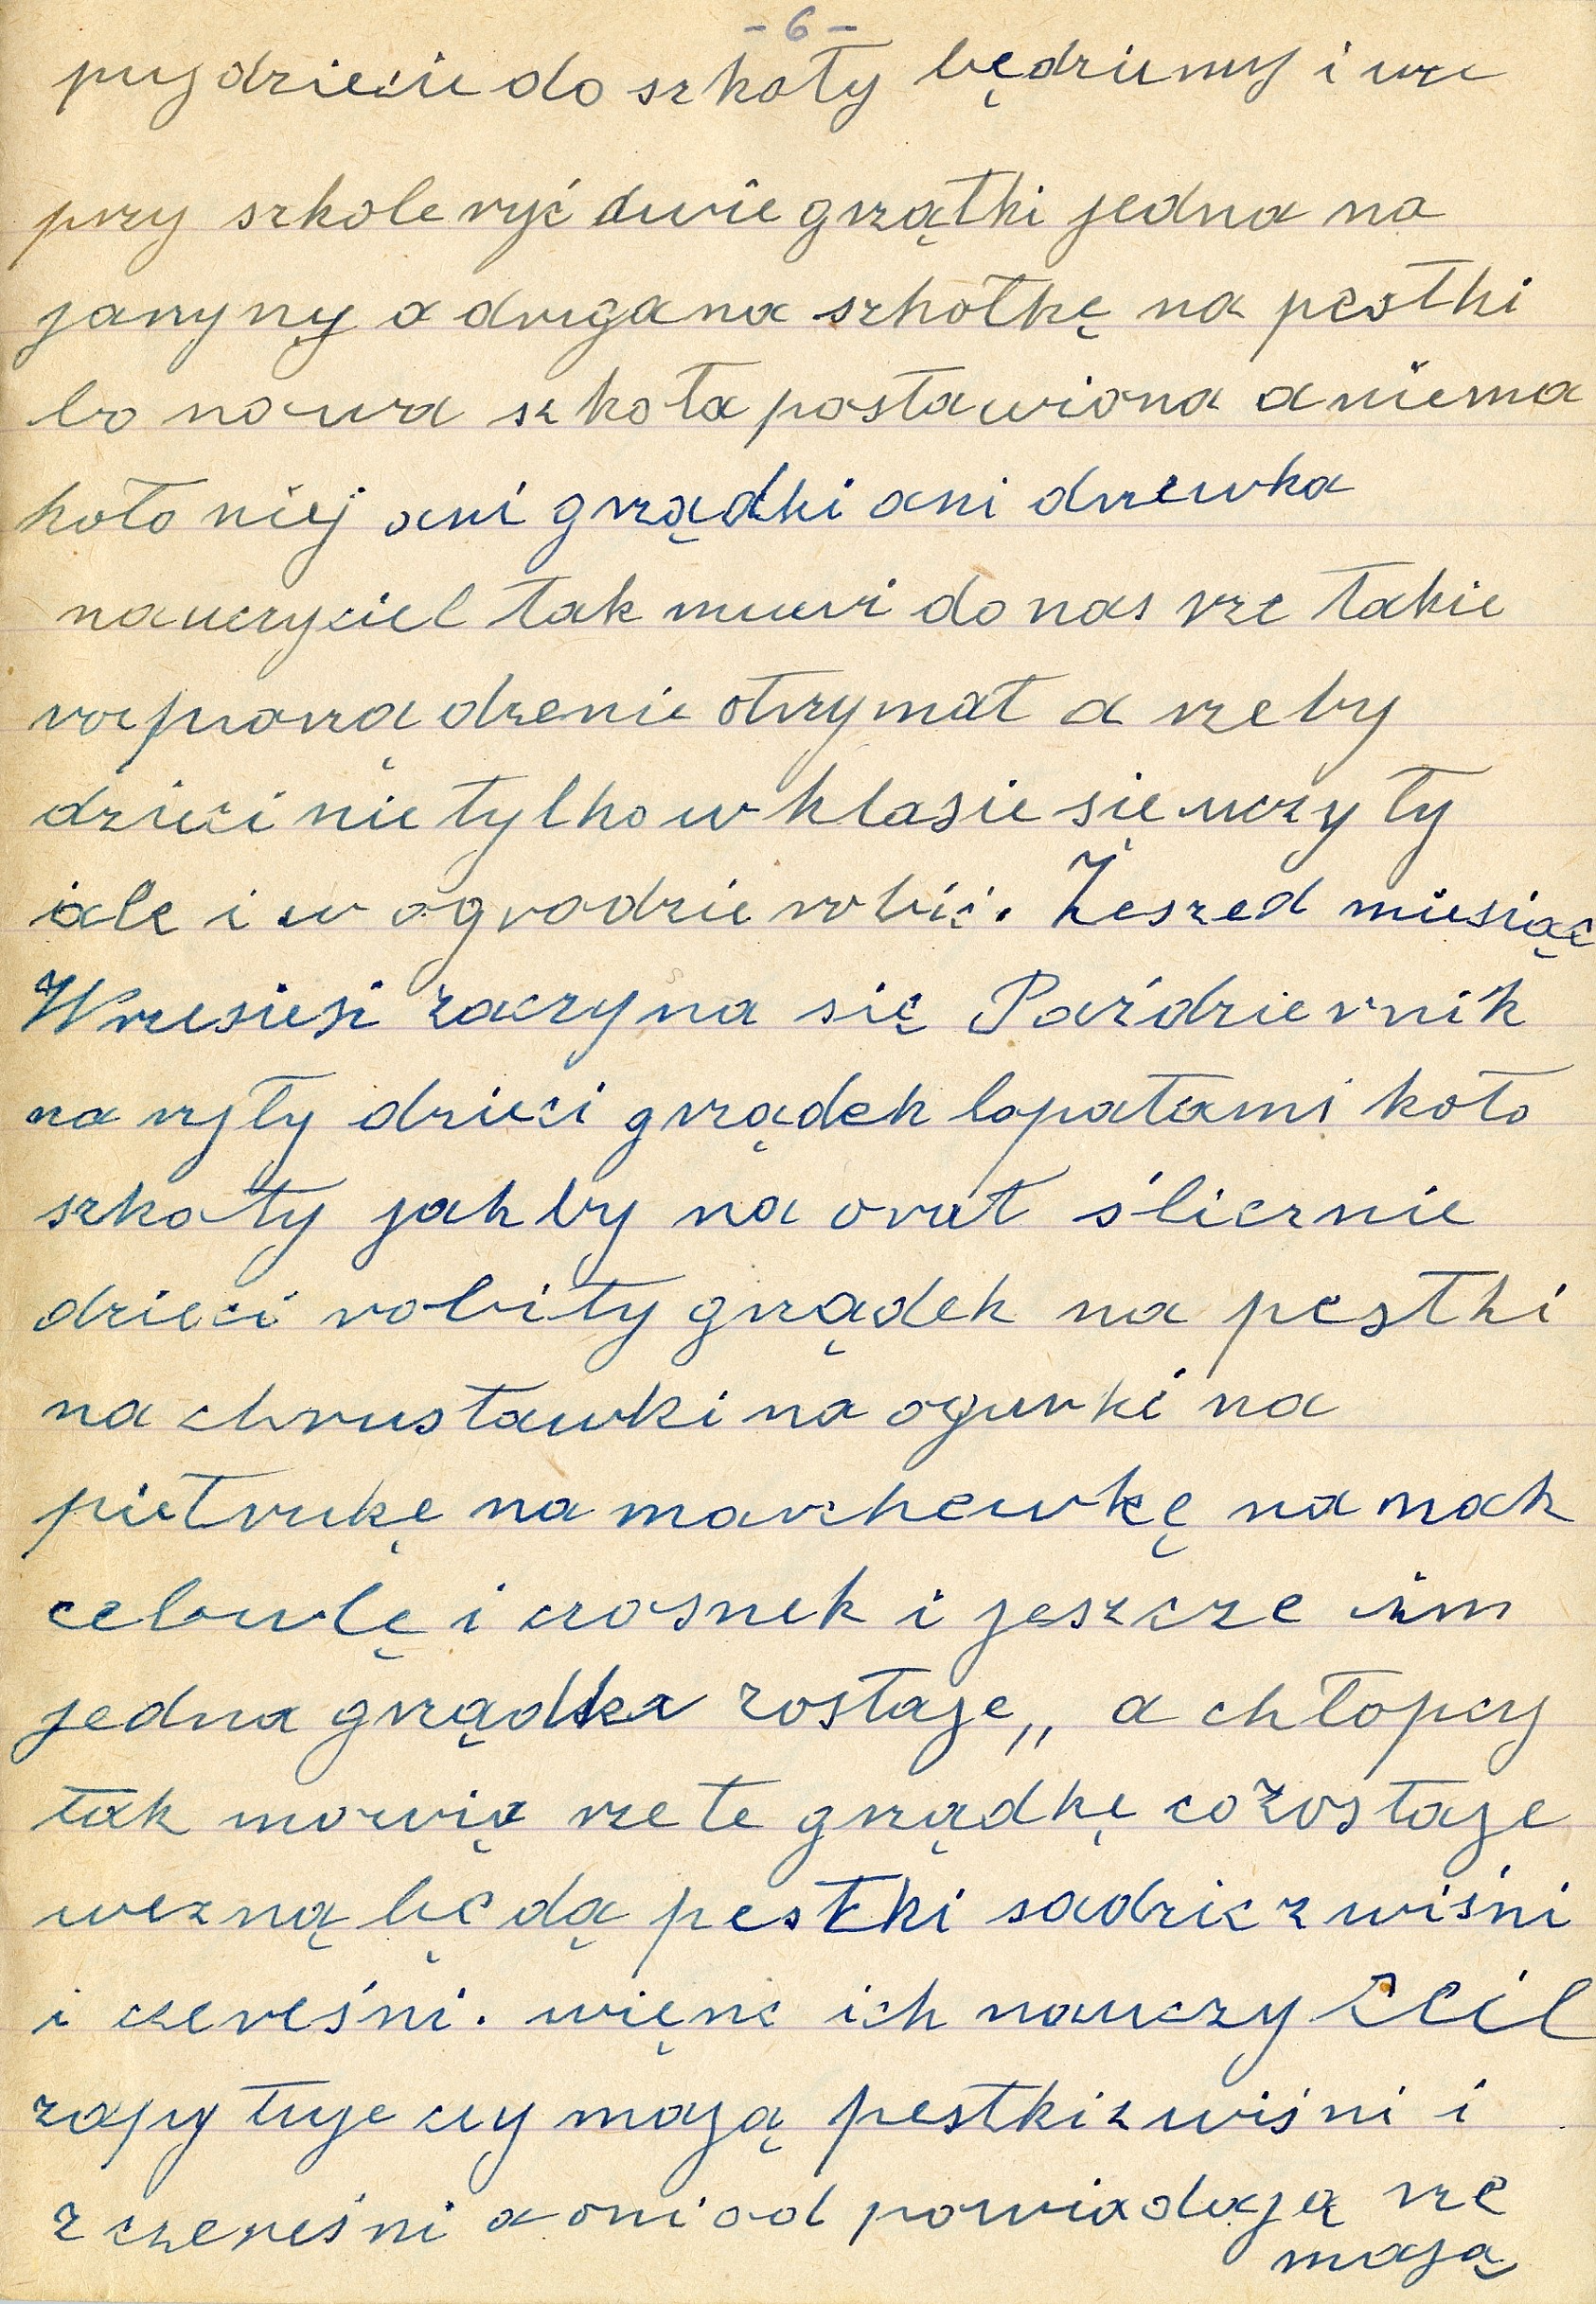 - 6 -
pujdziecie do szkoły będziemy i wre
przy szkole ryć dwie grzątki jedna na
jaryny a druga na szkołkę na pestki
bo nowa szkoła postawiona a niema
koło niej ani grządki ani drzewka
nauczyciel tak muwi do nas rze takie
rozporządzenie otrzymał a rzeby
dzieci nie tylko w klasie się uczyły
ale i w ogrodzie robić. Zeszed miesiąc
Wrzesień zaczyna się Październik
na ryły dzieci grządek lopatami koło
szkoły jakby na orał ślicznie
dzieci robiły grządek na pestki
na chrustawki na ogurki na
pietrukę na marchewkę na mak
cebulę i czosnek i jeszcze im
jedna grządka zostaje,, a chłopcy
tak morwią rze te grządkę co zostaje
wezną będą pestki sadzic z wiśni
i czereśni. więnc ich nauczyciel
zapytuje czy mają pestki z wiśni i
z czereśni a oni od powiadają rze
mają